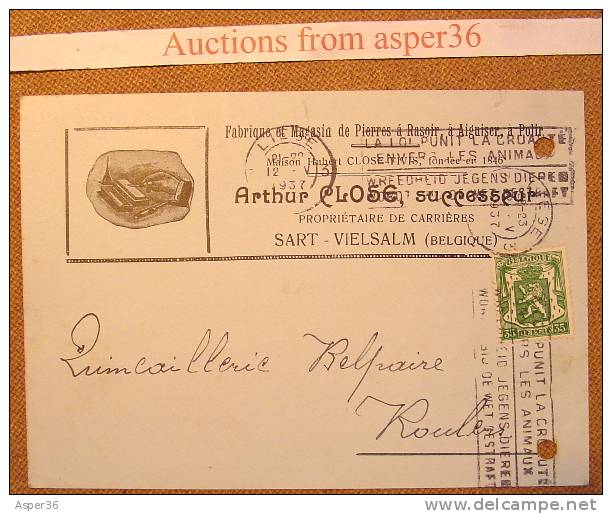 Auctions from asper36
Fabrique et Magasin de Pierres á Rasoir, à Aiguiser, à Polir
Maison Hubert CLOSE fondée en 1846
Arthur CLOSE, successeur
PROPRIÉTAIRE DE CARRIÈRES
SART - VIELSALM (BELGIQUE)
LIEGE
12 V
1937
LA LOI PUNIT LA CRUAUTE
ENVERS LES ANIMAUX
WREEDHEID JEGENS DIEREN
DE WET BESTRAFT
BELGIQUE
35 35
PUNIT LA CRUAUTE
LES ANIMAUX
JEGENS DIEREN
DE WET BESTRAFT
Quincaillerie Belpaire
Roulers
Asper36
delcampe.net